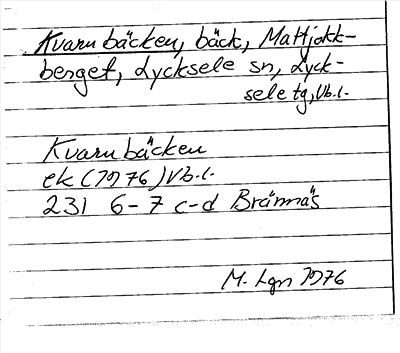 Kvarnbäcken, bäck, Mattjokk-
berget, Lycksele sn, Lyck-
sele tg, Vb.l.
Kvarnbäcken
ek (1976) Vb.l.
231 6-7 c-d Brännäs
M. Lgn 1976